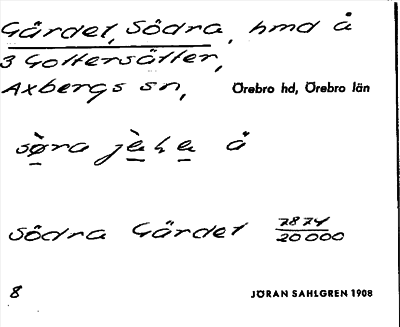 Gärdet, Södra, hmd å
3 Gottersätter,
Axbergs sn, Örebro hd, Örebro län
sø̀ra jèhe å
Södra Gärdet 7874/20000
8 JÖRAN SAHLGREN 1908